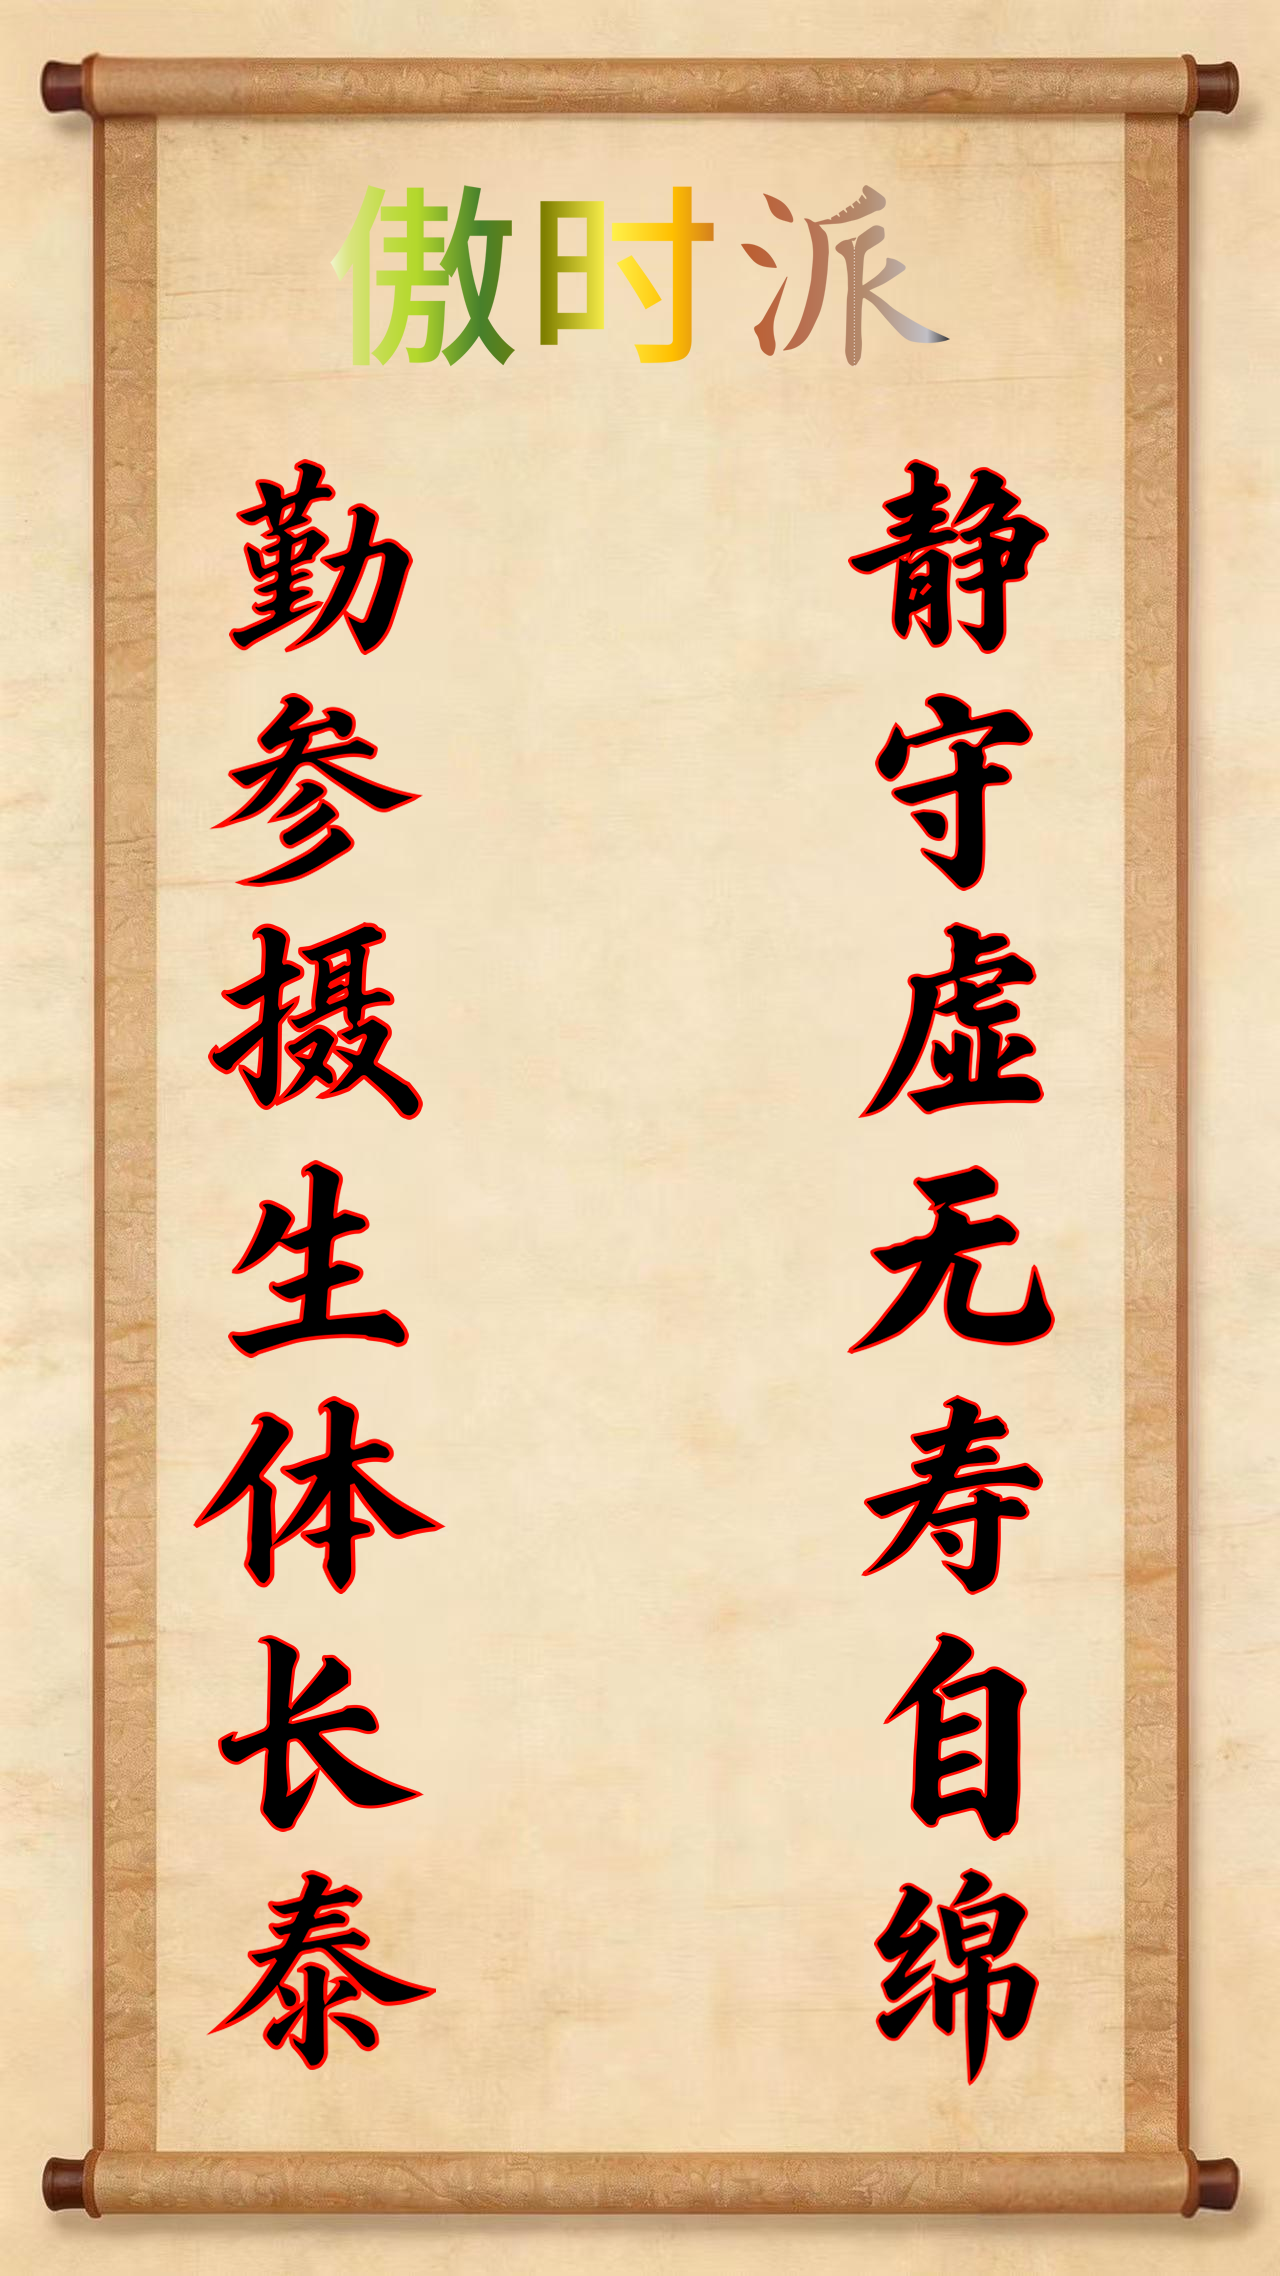 傲时派
静守虚无寿自绵
勤参摄生体长泰